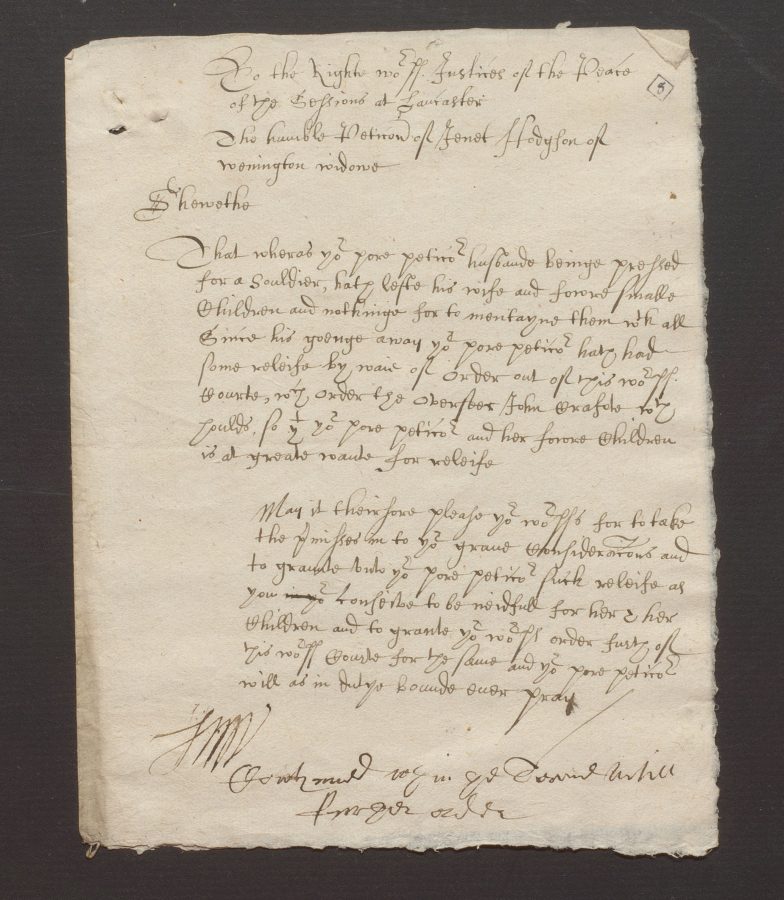 To the Righte wor:ff: Justices of the Peace
of the Sessions at Lancaster
The humble Peticon of Jenet Hodgson of
Wenington widowe
Shewethe
8
That wheras yor pore peticor husbande beinge pressed
for a Souldier, hath lefte his wife and fowre smalle
Children and nothinge for to mentayne them wth all
Since his goenge away yor pore peticor hath had
some releife by waie of order out of this worff:
Courte, wch order the Overseer John Crafote wth
houlds, so yt yor pore peticor and her fowre Children
is at greate wante for releife
May it theirfore please yor worffs for to take
the p'misses in to yor grave Consideracons and
to graunte unto yor pore peticor such releife as
you in yor Conseive to be neidfull for her & her
Children and to grante yor worffs order furth of
this worff Courte for the same and yor pore peticor
will as in dutye bounde ever pray
Contynued in ye Untill
further order